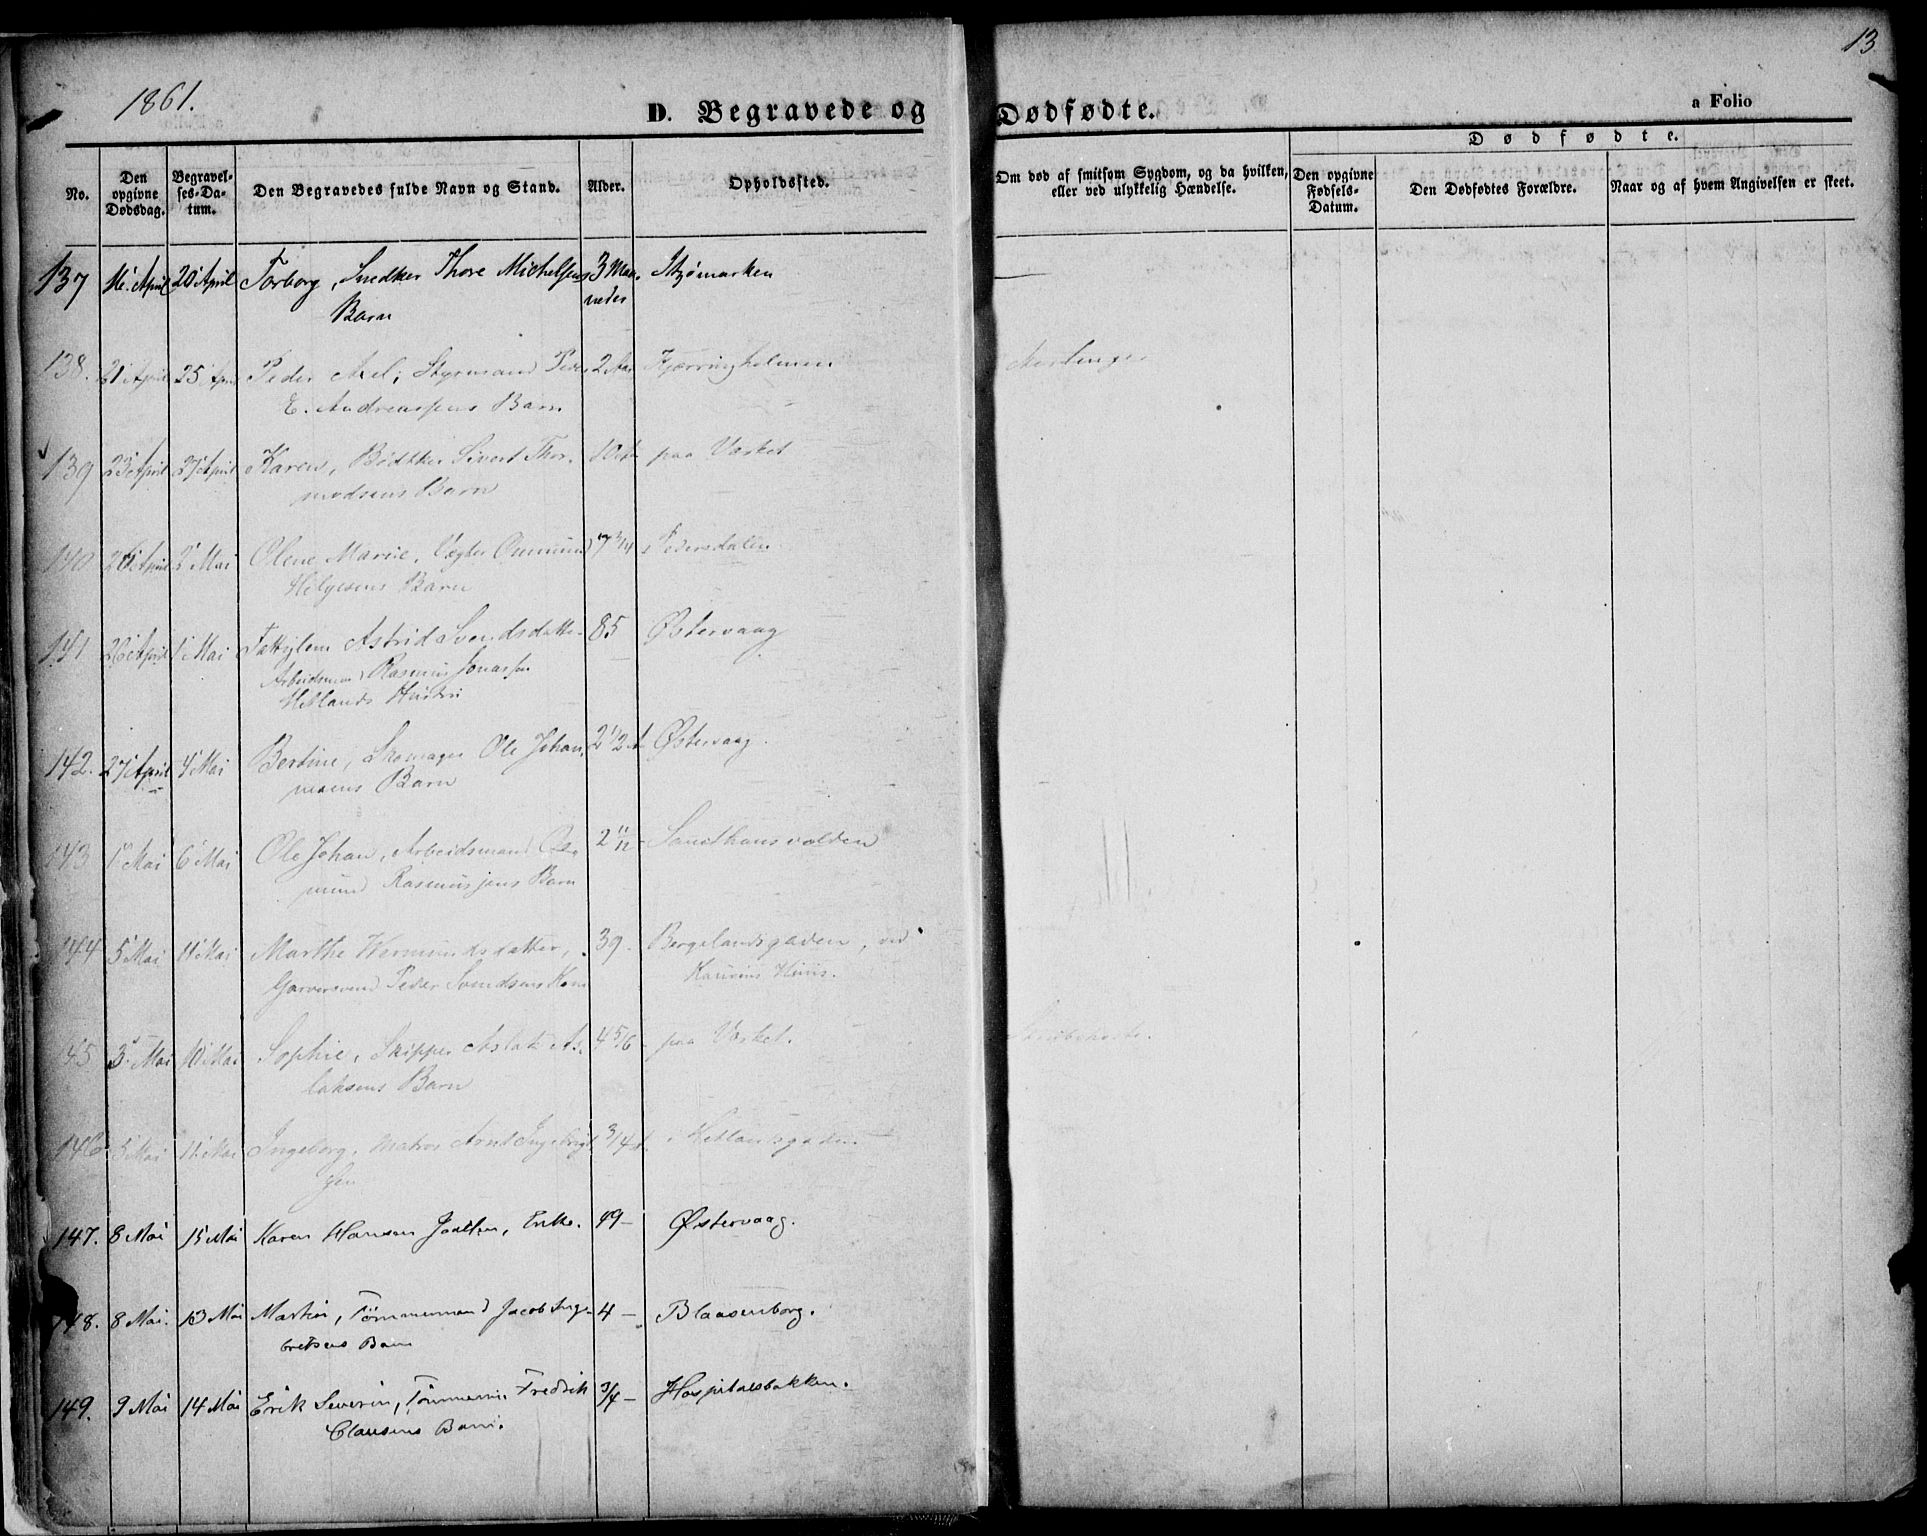 1861.
13.
D. Begravede og Dødfødte.
a Folio
No.
Den opgivne Dødsdag.
Begravelses-Datum.
Den Begravedes fulde Navn og Stand.
Alder.
Opholdssted.
Om død af smitsom Sygdom, og da hvilken, eller ved ulykkelig Hændelse.
Dødfødte.
Den opgivne Fødsels-Datum.
Den Dødfødtes Forældre.
Naar og af hvem Angivelsen er skeet.
137 16 April 20 April Torborg, Snedker Thore Michelsens 3 Maa-
Barn neder
138. 21 April 25 Apr Peder Axel, Styrmand Peder 2 Aar Kjærringholmen
E. Andreassens Barn
139 23 April 27 April Karen, Bødtker Sivert Thor- paa Værket
modsens Barn
140 26 April 2 Mai Olene Marie, Vægter Ommund 7 3/4 Pedersdalen
Helgesens Barn
141 26 April 1 Mai Astrid Svendsdatter 85 Østervaag
Arbeidsmand Rasmus Jonassen
Hetlands Hustru
142. 27 April 4 Mai Bertine, Skomager Ole Johan- 2 1/2 A Østervaag.
nesens Barn
143 1 Mai 6 Mai Ole Johan, Arbeidsmand Os- 2 11/12 Sancthansvolden
mund Rasmussens Barn
144 5 Mai 11 Mai Marthe Wermundsdatter, 39 - Bergelandsgaden, ved
Garversvend Peder Svendsens Kone Huus.
145 3 Mai 10 Mai Sophie, Skipper Aslak As- 4 5/6 - paa Værket. Strubehoste.
laksens Barn
146 5 Mai 11 Mai Ingeborg, Matros Arnt Ingebrigt 3/4 A. i Hetlandsgaden
sen
147. 8 Mai 15 Mai Karen Hansen Enke. 49 - Østervaag.
148. 8 Mai. 13 Mai Martin, Tømmermand Jacob Inge- 4 - Blaasenborg.
bretsens Barn
149. 9 Mai 14 Mai Erik Severin, Tømmerm. Fredrik 3/4 - Hospitalsbakken.
Clausens Barn.